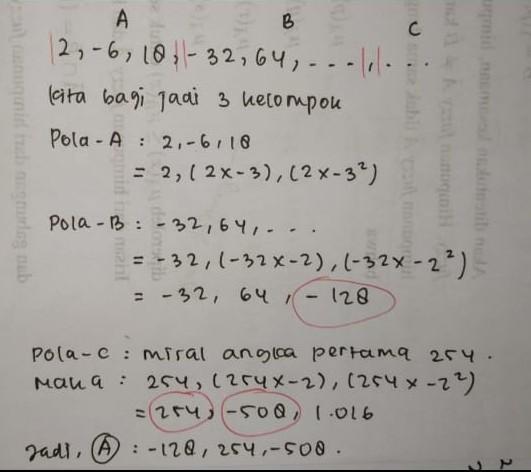 A B C
2, -6, 18, -32, 64, ..., ...
kita bagi jadi 3 kelompok
Pola-A : 2, -6, 18
= 2, (2x-3), (2x-3²)
Pola-B : -32, 64, ...
= -32, (-32x-2), (-32x-2²)
= -32, 64, -128
Pola-C : misal angka pertama 254.
Maka : 254, (254x-2), (254x-2²)
= 254, -508, 1.016
Jadi, A : -128, 254, -508.